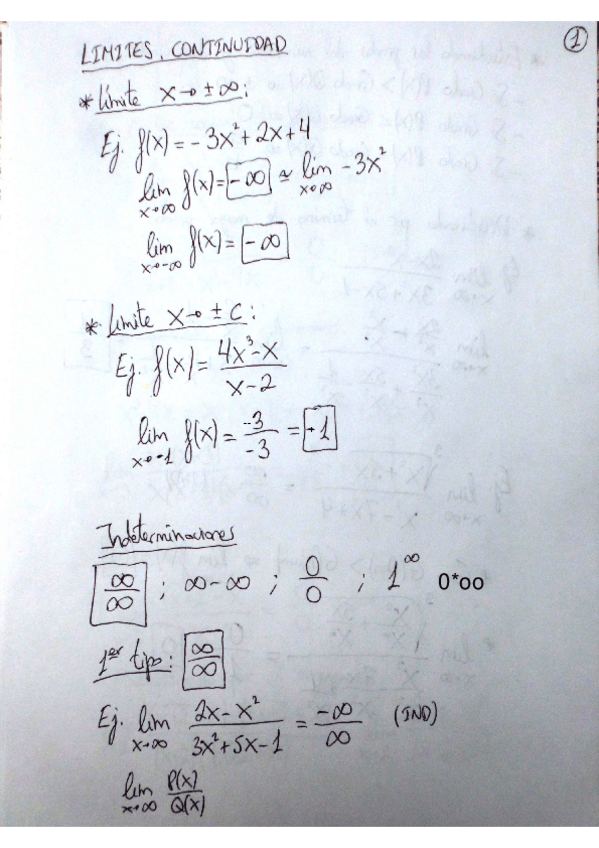 1
LIMITES. CONTINUIDAD
* Límite x→±∞:
Ej. f(x) = -3x²+2x+4
lim x→∞ f(x) = -∞ ≃ lim x→∞ -3x²
lim x→-∞ f(x) = -∞
* Límite x→±c:
Ej. f(x) = (4x³-x)/(x-2)
lim x→-1 f(x) = -3/-3 = +1
Indeterminaciones
∞/∞ ; ∞-∞ ; 0/0 ; 1^∞ 0*oo
1er tipo: ∞/∞
Ej. lim x→∞ (2x-x²)/(3x²+5x-1) = -∞/∞ (IND)
lim x→∞ P(x)/Q(x)